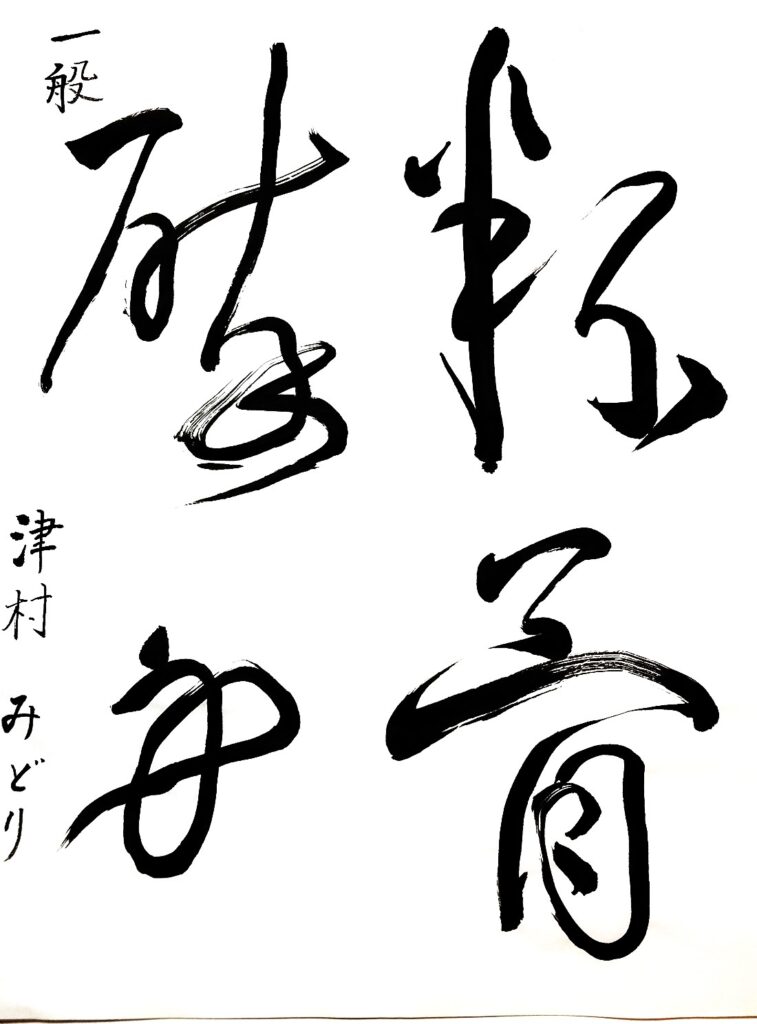 粉骨
砕身
一般 津村 みどり